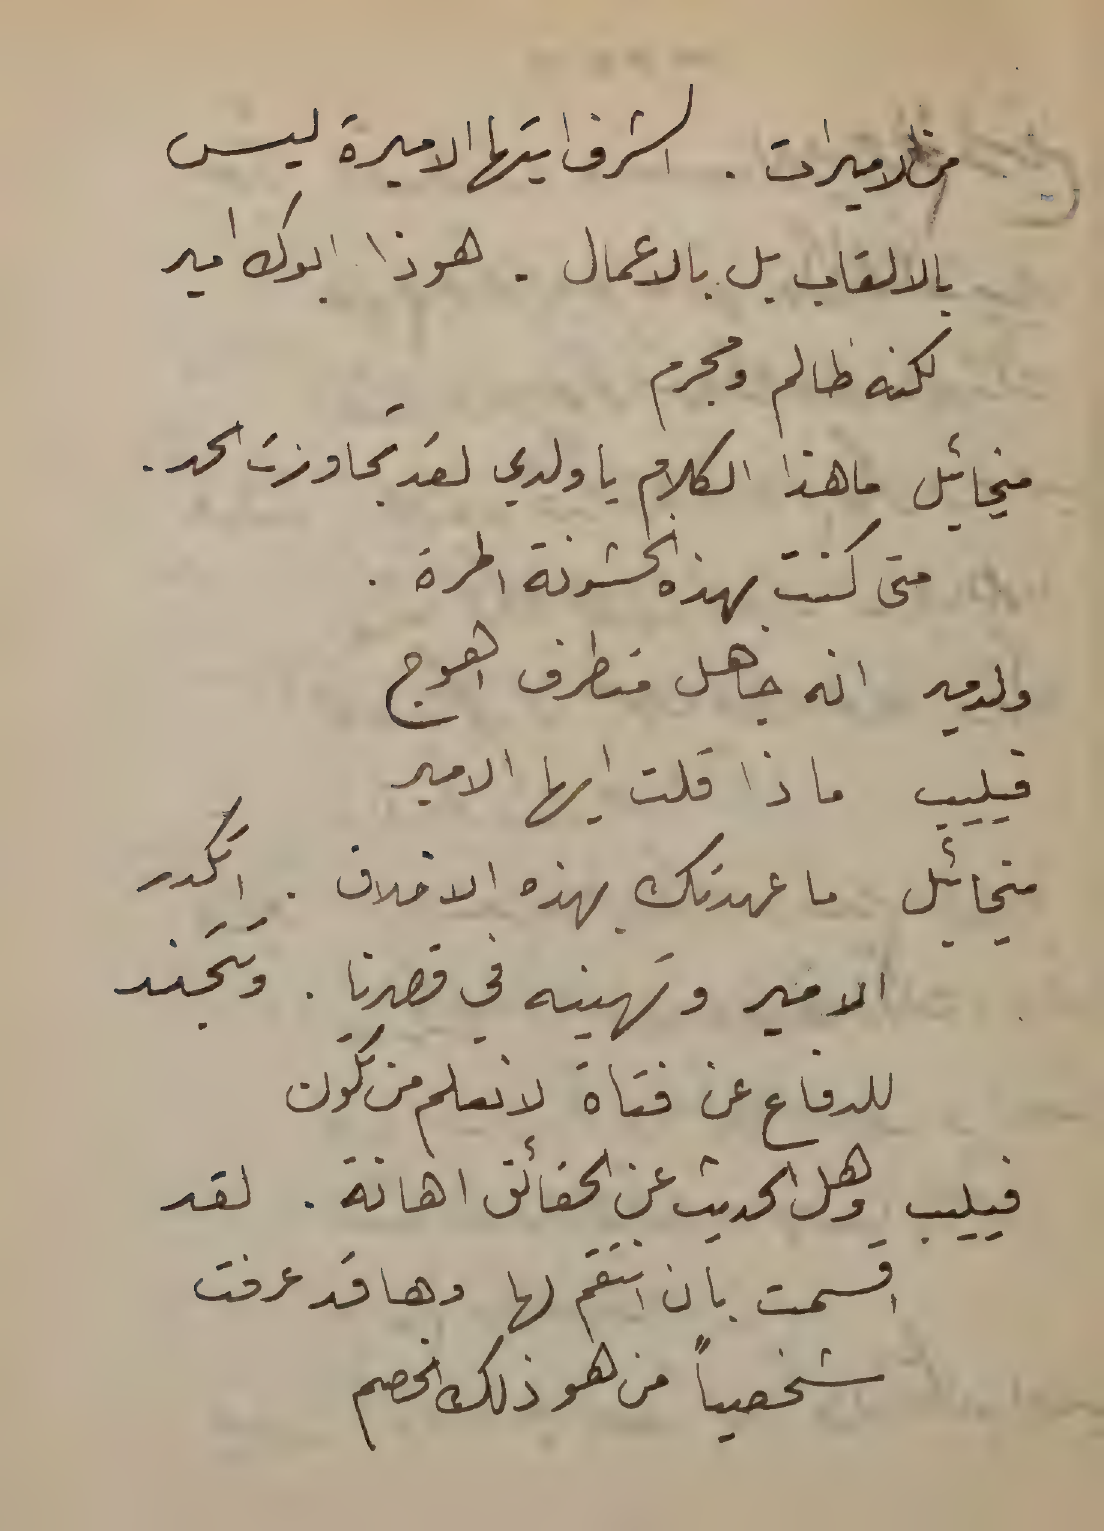 من الاميرات . الشرف ايتها الاميرة ليس
بالالقاب بل بالاعمال . هوذا ابوك امير
لكنه ظالم ومجرم
ميخائيل ما هذا الكلام يا ولدي لقد تجاوزت الحد .
متى كنت بهذه الخشونة المرة .
ولدمير انه جاهل متطرف اهوج
فيليب ماذا قلت ايها الامير
ميخائيل ما عهدتك بهذه الاخلاق . اتكدر
الامير وتهينه في قصرنا . وتتجند
للدفاع عن فتاة لا نعلم من تكون
فيليب وهل الحديث عن الحقائق اهانة . لقد
اقسمت بان انتقم لها وها قد عرفت
شخصياً من هو ذلك الخصم